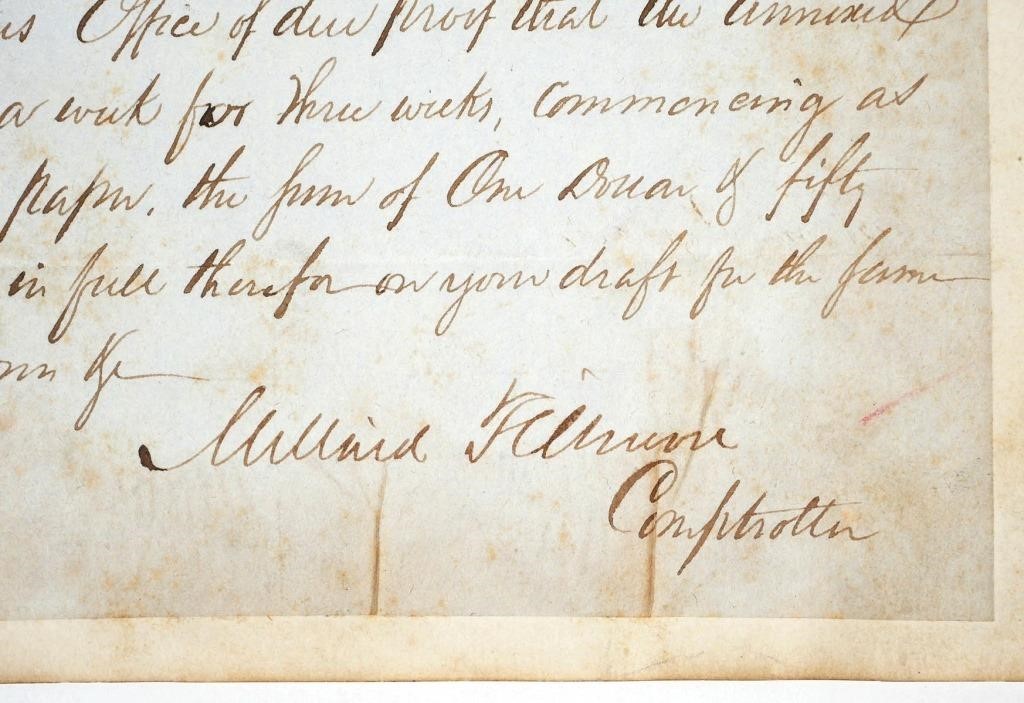 is Office of due proof that the annexed
a week for three weeks, commencing as
paper, the sum of One Dollar & fifty
in full therefor on your draft for the same
&c
Millard Fillmore
Comptroller